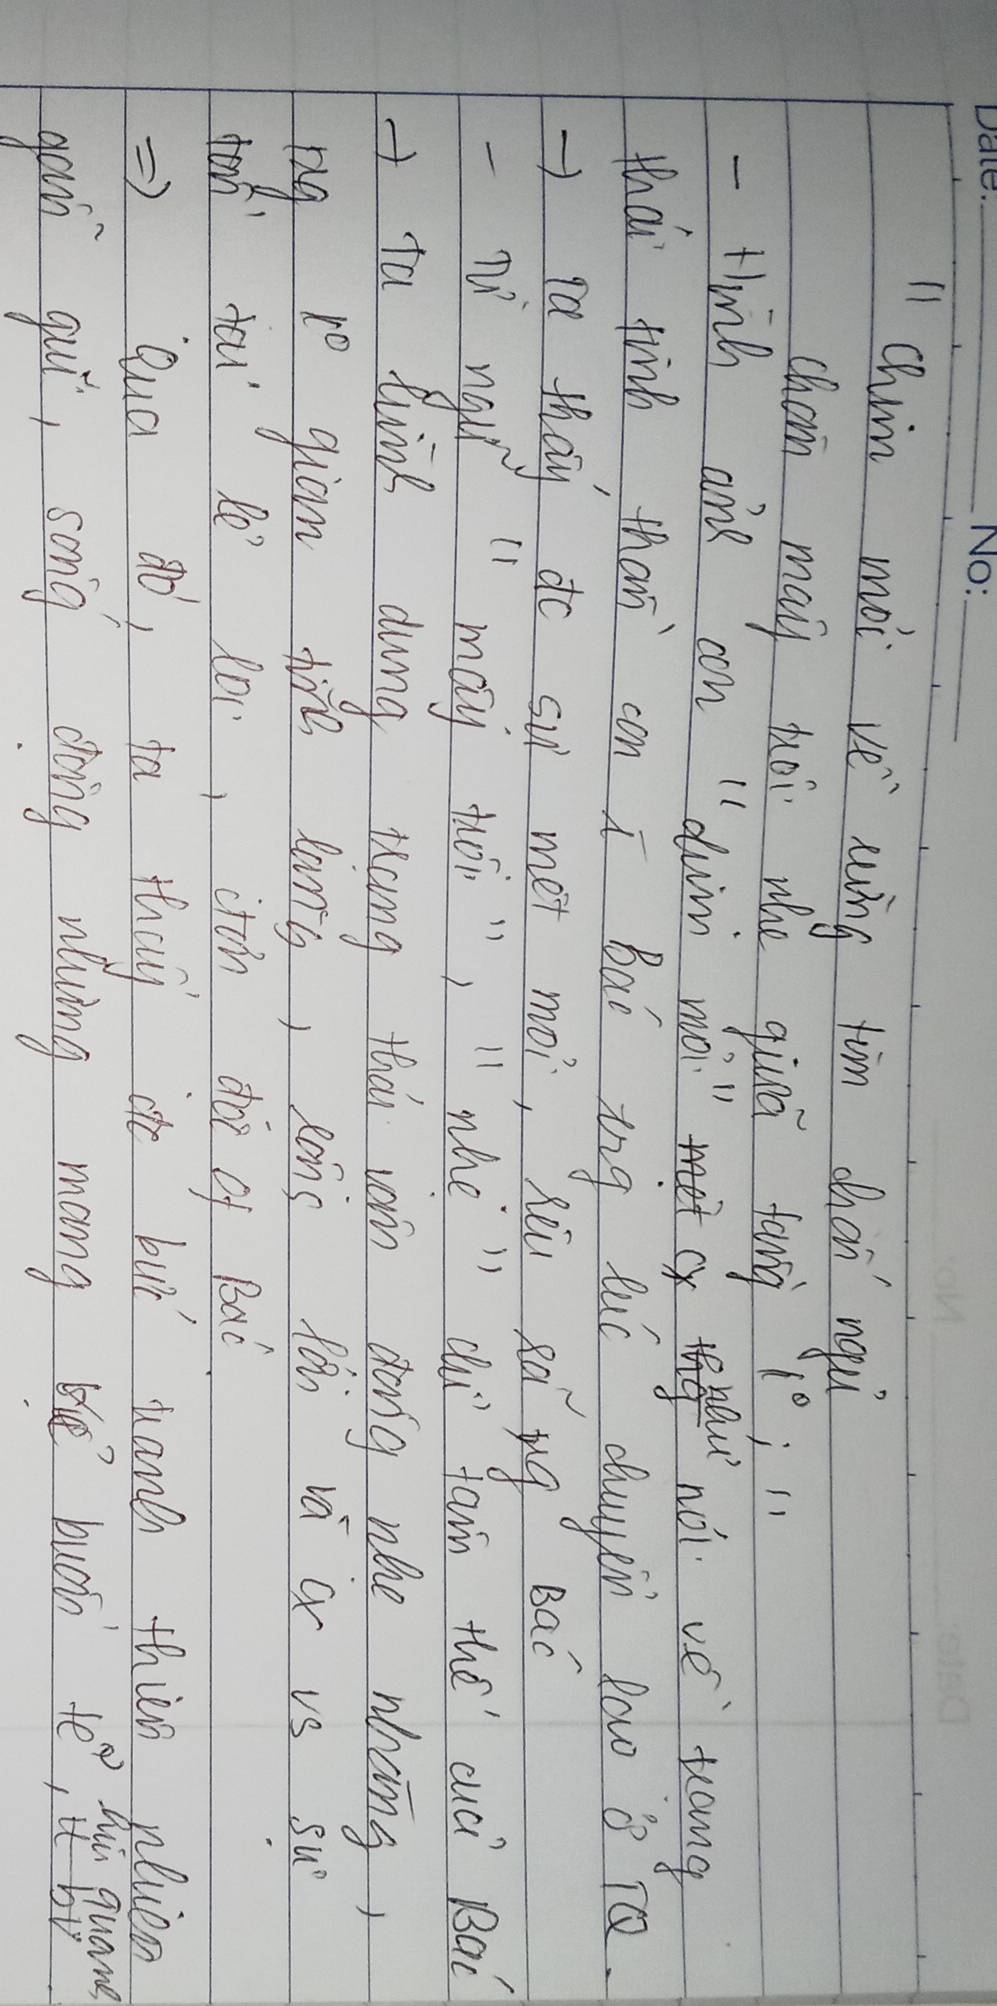 Date: No:
" Chim mỏi về rừng tìm chốn ngủ
Chòm mây trôi nhẹ giữa tầng k°; "
- Hình ảnh con " chim mỏi " một cx thg như nói về trạng
thái tinh thần con Bác trg lúc chuyển lao ở TQ.
-) Ta thấy đc sự mệt mỏi, rệu rã ng Bác
- Từ ngữ " mây trôi ", " nhẹ " chỉ tâm thế của Bác
-) ta hình dung trạng thái vận động nhẹ nhàng,
ng k° gian tĩnh lặng, rộng lớn và cx vs sự
tồn tại lẻ loi, đơn độc of Bác
=) Qua đó, ta thấy đc bức tranh thiên nhiên
gần gũi, sống động nhưng mang vẻ buồn tẻ, hiu quạnh